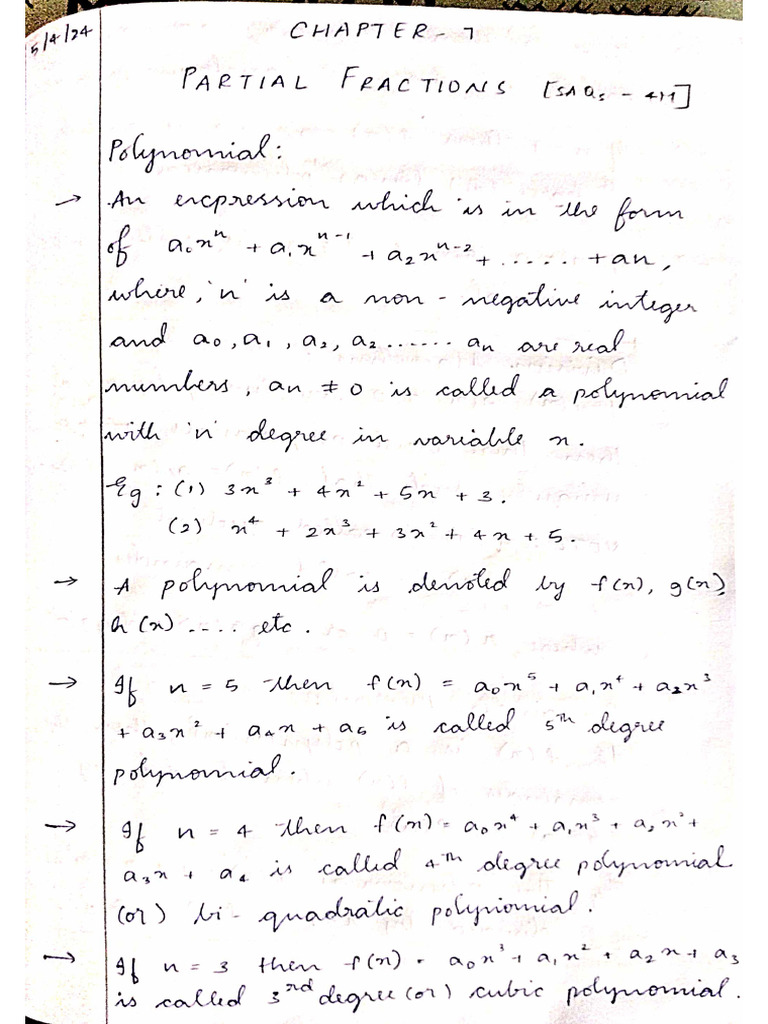 5/4/24
CHAPTER - 7
PARTIAL FRACTIONS [SAQs - 4M]
Polynomial:
→ An expression which is in the form
of a₀xⁿ + a₁xⁿ⁻¹ + a₂xⁿ⁻² + ..... + an,
where, 'n' is a non - negative integer
and a₀, a₁, a₂, a₂...... an are real
numbers, an ≠ 0 is called a polynomial
with 'n' degree in variable x.
Eg : (1) 3x³ + 4x² + 5x + 3.
(2) x⁴ + 2x³ + 3x² + 4x + 5.
→ A polynomial is denoted by f(x), g(x),
h(x) .... etc.
→ If n = 5 then f(x) = a₀x⁵ + a₁x⁴ + a₂x³
+ a₃x² + a₄x + a₅ is called 5ᵀᴴ degree
polynomial.
→ If n = 4 then f(x) = a₀x⁴ + a₁x³ + a₂x² +
a₃x + a₄ is called 4ᵀᴴ degree polynomial
(or) bi - quadratic polyniomial.
→ If n = 3 then f(x) = a₀x³ + a₁x² + a₂x + a₃
is called 3ʳᵈ degree (or) cubic polynomial.